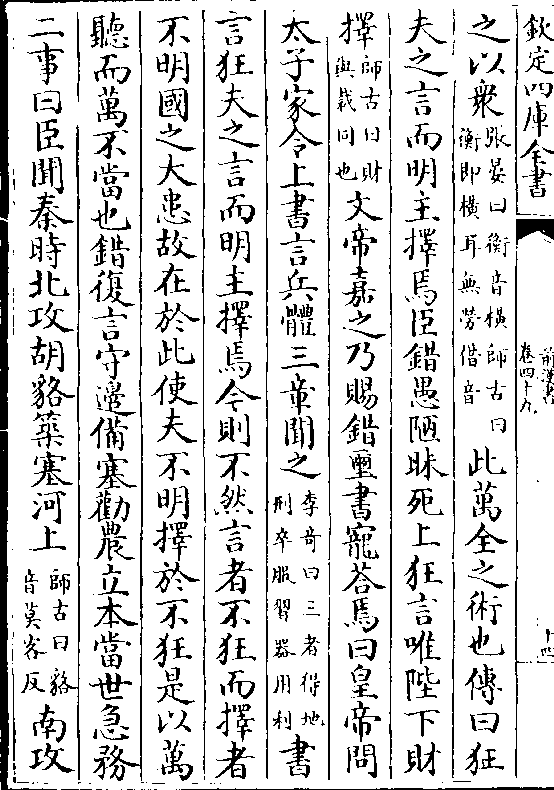 欽定四庫全書
前漢書
卷四十九
十四
之以衆張晏曰衡音橫師古曰衡即橫耳無勞借音此萬全之術也傳曰狂
夫之言而明主擇焉臣錯愚陋昧死上狂言唯陛下財
擇師古曰財與裁同也文帝嘉之乃賜錯璽書寵荅焉曰皇帝問
太子家令上書言兵體三章聞之李奇曰三者得地形卒服習器用利書
言狂夫之言而明主擇焉今則不然言者不狂而擇者
不明國之大患故在於此使夫不明擇於不狂是以萬
聽而萬不當也錯復言守邊備塞勸農立本當世急務
二事曰臣聞秦時北攻胡貉築塞河上師古曰貉音莫客反南攻